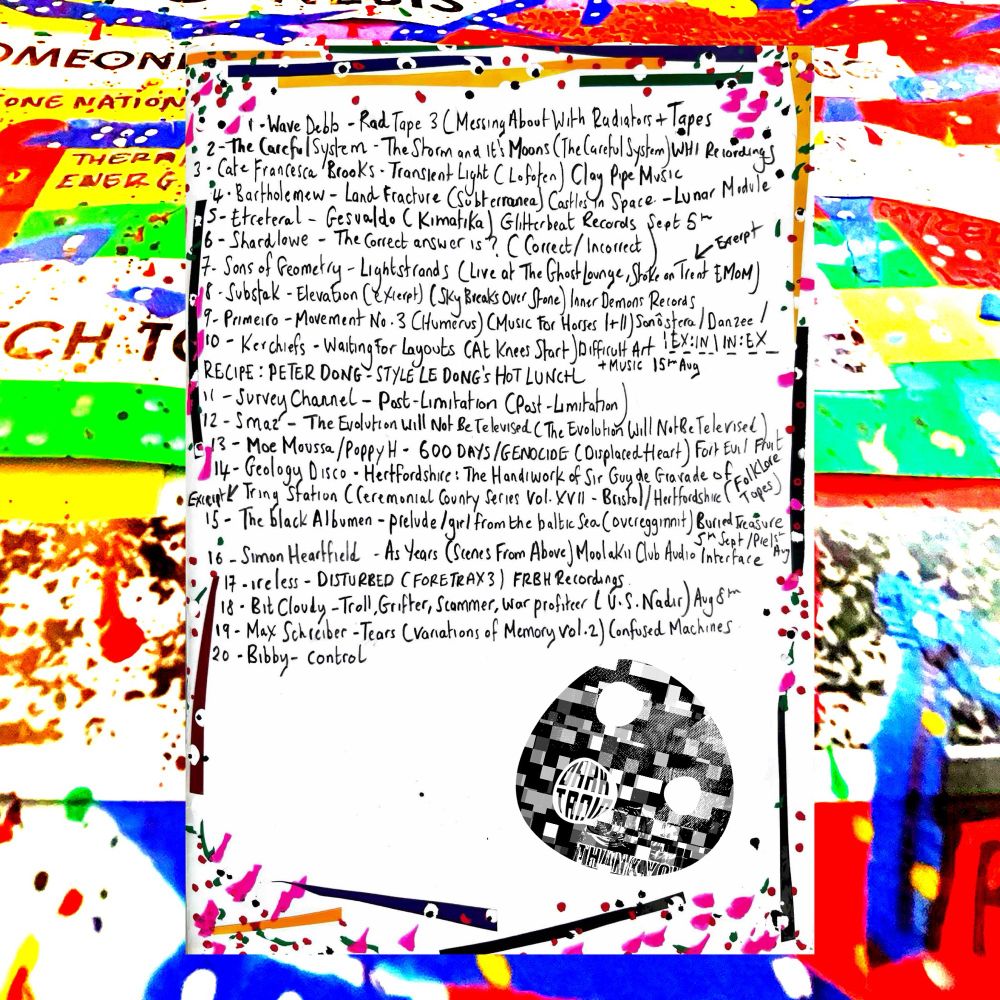 OMEON
ONE NATION
THERA
ENERG
TCH TO
1 - Wave Debb - Rad Tape 3 (Messing About With Radiators + Tapes
2 - The Careful System - The Storm and It's Moons (The Careful System) WHI Recordings
3 - Cate Francesca Brooks - Transient Light (Lofoten) Clay Pipe Music
4 - Bartholemew - Land Fracture (Subterranea) Castles In Space - Lunar Module
5 - Etceteral - Gesualdo (Kimatika) Glitterbeat Records Sept 5th
6 - Shardlowe - The Correct answer is? (Correct/Incorrect)
Exerpt
7 - Sons of Geometry - Lightstrands (Live at The Ghost Lounge, Stoke on Trent EMOM)
8 - Substak - Elevation (Exierpt) (Sky Breaks Over Stone) Inner Demons Records
9 - Primeiro - Movement No. 3 (Humerus) (Music For Horses I+II) Sonôstera / Danzee /
10 - Kerchiefs - Waiting For Layouts (At Knees Start) Difficult Art EX:IN \ IN:EX
+ Music 15th Aug
RECIPE: PETER DONG - STYLE LE DONG'S HOT LUNCH
11 - Survey Channel - Post-Limitation (Post-Limitation)
12 - Smaz - The Evolution Will Not Be Televised (The Evolution Will Not Be Televised)
13 - Moe Moussa / Poppy H - 600 DAYS/GENOCIDE (Displaced Heart) Fort Evil Fruit
14 - Geology Disco - Hertfordshire: The Handiwork of Sir Guy de Gravade of (Folklore
Excerpt Tring Station (Ceremonial County Series Vol. XVII - Bristol/Hertfordshire Tapes)
15 - The black Albumen - prelude/girl from the baltic Sea (overegginnit) Buried Treasure
5th Sept/Pre 1st Aug
16 - Simon Heartfield - As Years (Scenes From Above) Moolakii Club Audio Interface
17 - ireless - DISTURBED (FORETRAX 3) FRBH Recordings
18 - Bit Cloudy - Troll, Grifter, Scammer, war profiteer (U.S. Nadir) Aug 8th
19 - Max Schreiber - Tears (Variations of Memory Vol. 2) Confused Machines
20 - Bibby - Control
THANK YOU